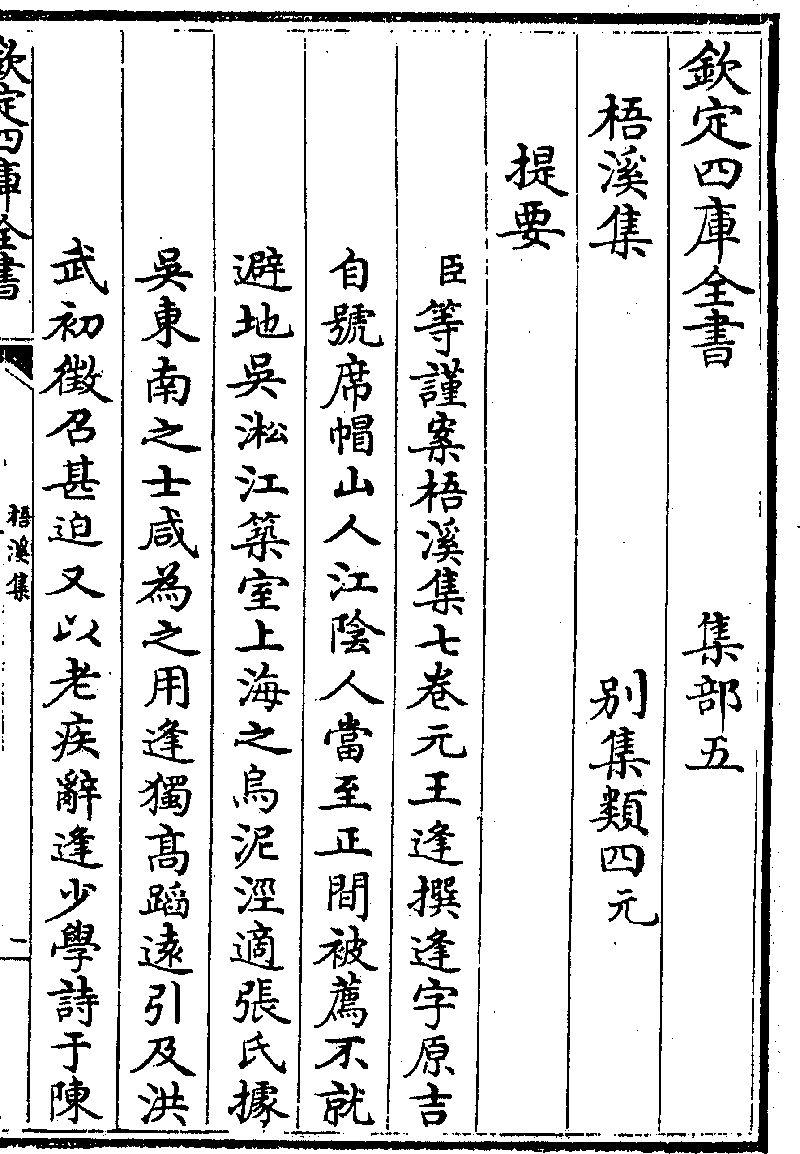 欽定四庫全書　集部五
梧溪集　別集類四元
提要
臣等謹案梧溪集七卷元王逢撰逢字原吉
自號席帽山人江陰人當至正間被薦不就
避地吳淞江築室上海之烏泥涇適張氏據
吳東南之士咸為之用逢獨高蹈遠引及洪
武初徵召甚迫又以老疾辭逢少學詩于陳
欽定四庫全書
梧溪集